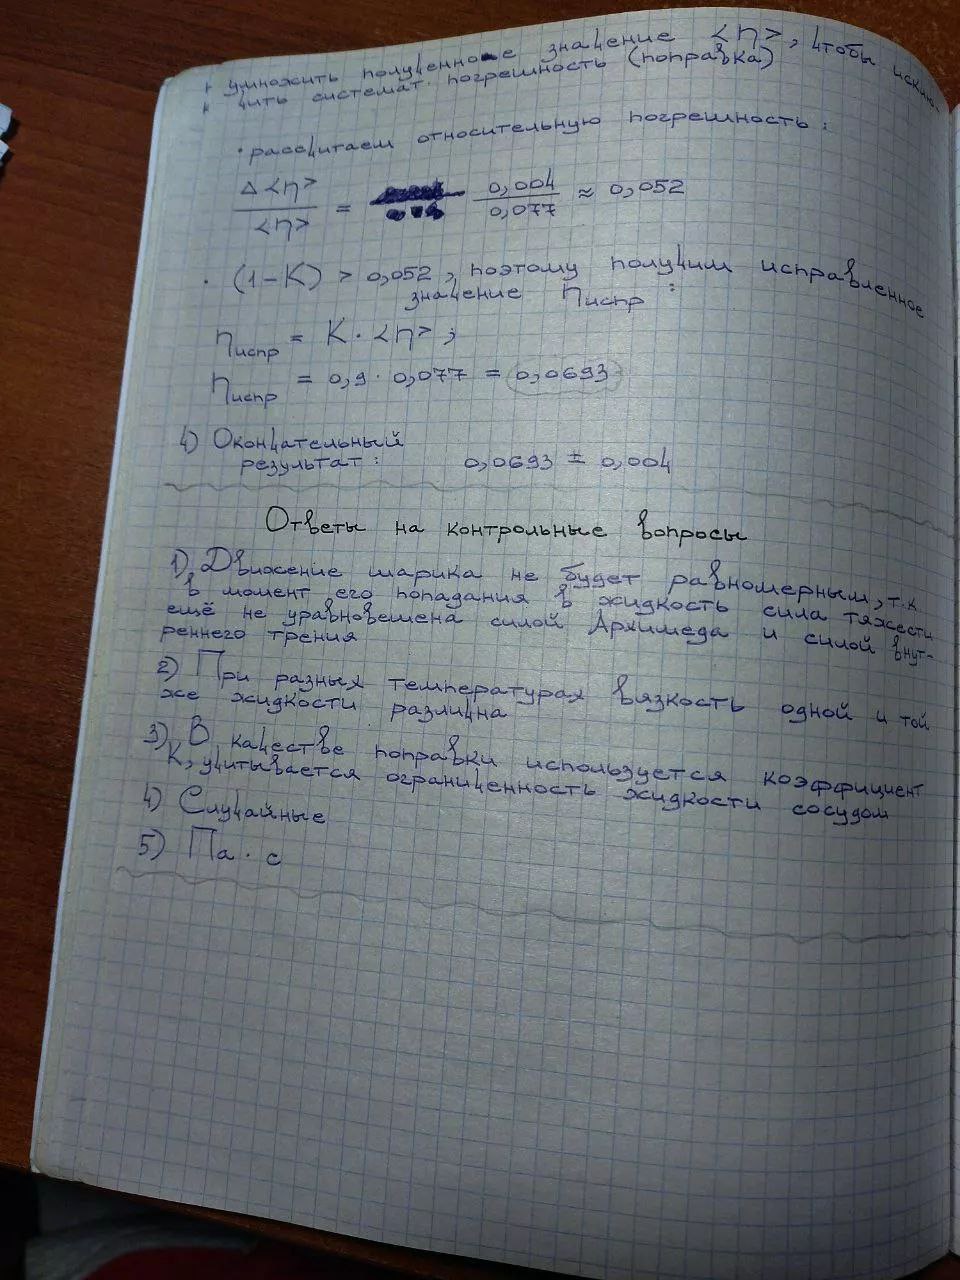 умножить полученное значение <η>, чтобы исклю-
чить системат. погрешность (поправка)
• рассчитаем относительную погрешность:
Δ<η> / <η> = 0,004 / 0,077 ≈ 0,052
• (1-К) > 0,052, поэтому получим исправленное
значение ηиспр :
ηиспр = К · <η> ;
ηиспр = 0,9 · 0,077 = 0,0693
4) Окончательный
результат: 0,0693 ± 0,004
Ответы на контрольные вопросы
1) Движение шарика не будет равномерным, т.к.
в момент его попадания в жидкость сила тяжести
ещё не уравновешена силой Архимеда и силой внут-
реннего трения
2) При разных температурах вязкость одной и той
же жидкости различна
3) В качестве поправки используется коэффициент
К, учитывается ограниченность жидкости сосудом
4) Случайные
5) Па · с